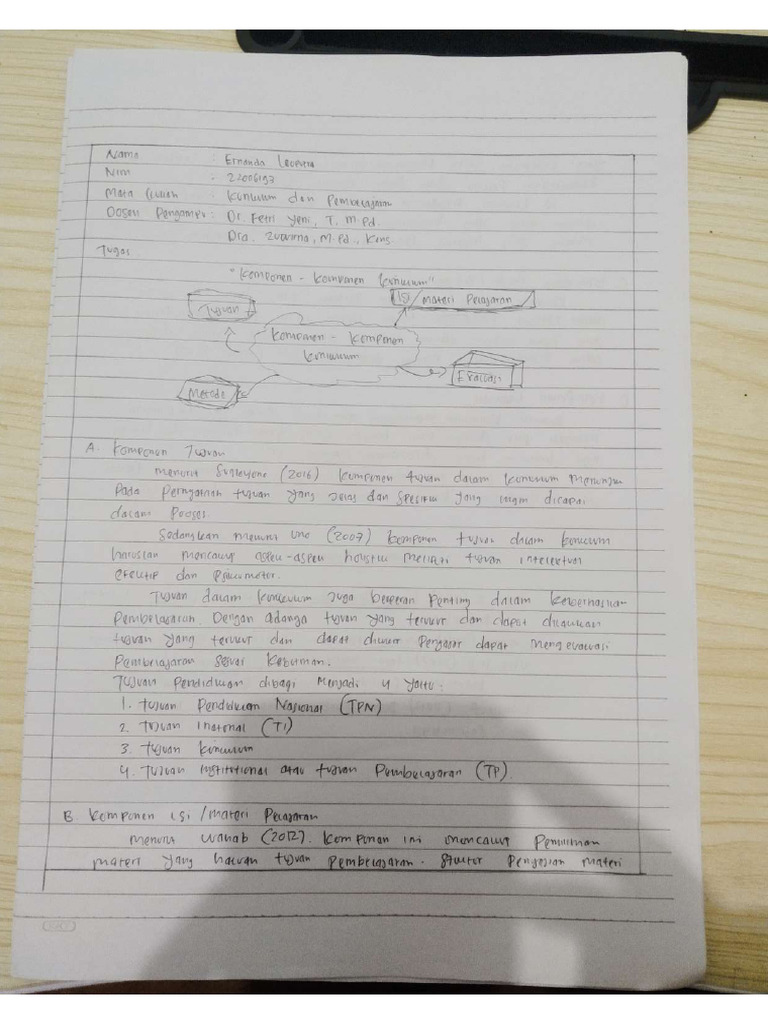 Nama : Ernanda
Nim :
Mata Kuliah : Kurikulum dan Pembelajaran
Dosen Pengampu : Dr. Fetri Yeni, T. M.Pd.
Dra. Zuwirna, M.Pd., Kons.
Tugas
"Komponen - Komponen Kurikulum"
Tujuan
Isi / Materi Pelajaran
Komponen - Komponen
Kurikulum
Evaluasi
Metode
A. Komponen Tujuan
Menurut (2016) komponen tujuan dalam kurikulum merujuk
Pada Pernyataan tujuan yang jelas dan spesifik yang ingin dicapai
dalam Proses.
Sedangkan menurut uno (2007) komponen tujuan dalam kurikulum
haruslah mencakup aspek-aspek holistik meliputi tujuan intelektual
dan Psikomotor.
Tujuan dalam kurikulum juga berperan Penting dalam keberhasilan
Pembelajaran. Dengan adanya tujuan yang terukur dan dapat
tujuan yang terukur dan dapat diukur Pengajar dapat mengevaluasi
Pembelajaran sesuai
Tujuan Pendidikan dibagi menjadi 4 yaitu:
1. tujuan Pendidikan Nasional (TPN)
2. Tujuan (TI)
3. tujuan kurikulum
4. Tujuan institutional atau tujuan Pembelajaran (TP).
B. Komponen isi/materi Pelajaran
Menurut Wahab (2012). Komponen ini mencakup Pemilihan
materi yang tujuan Pembelajaran. Struktur materi